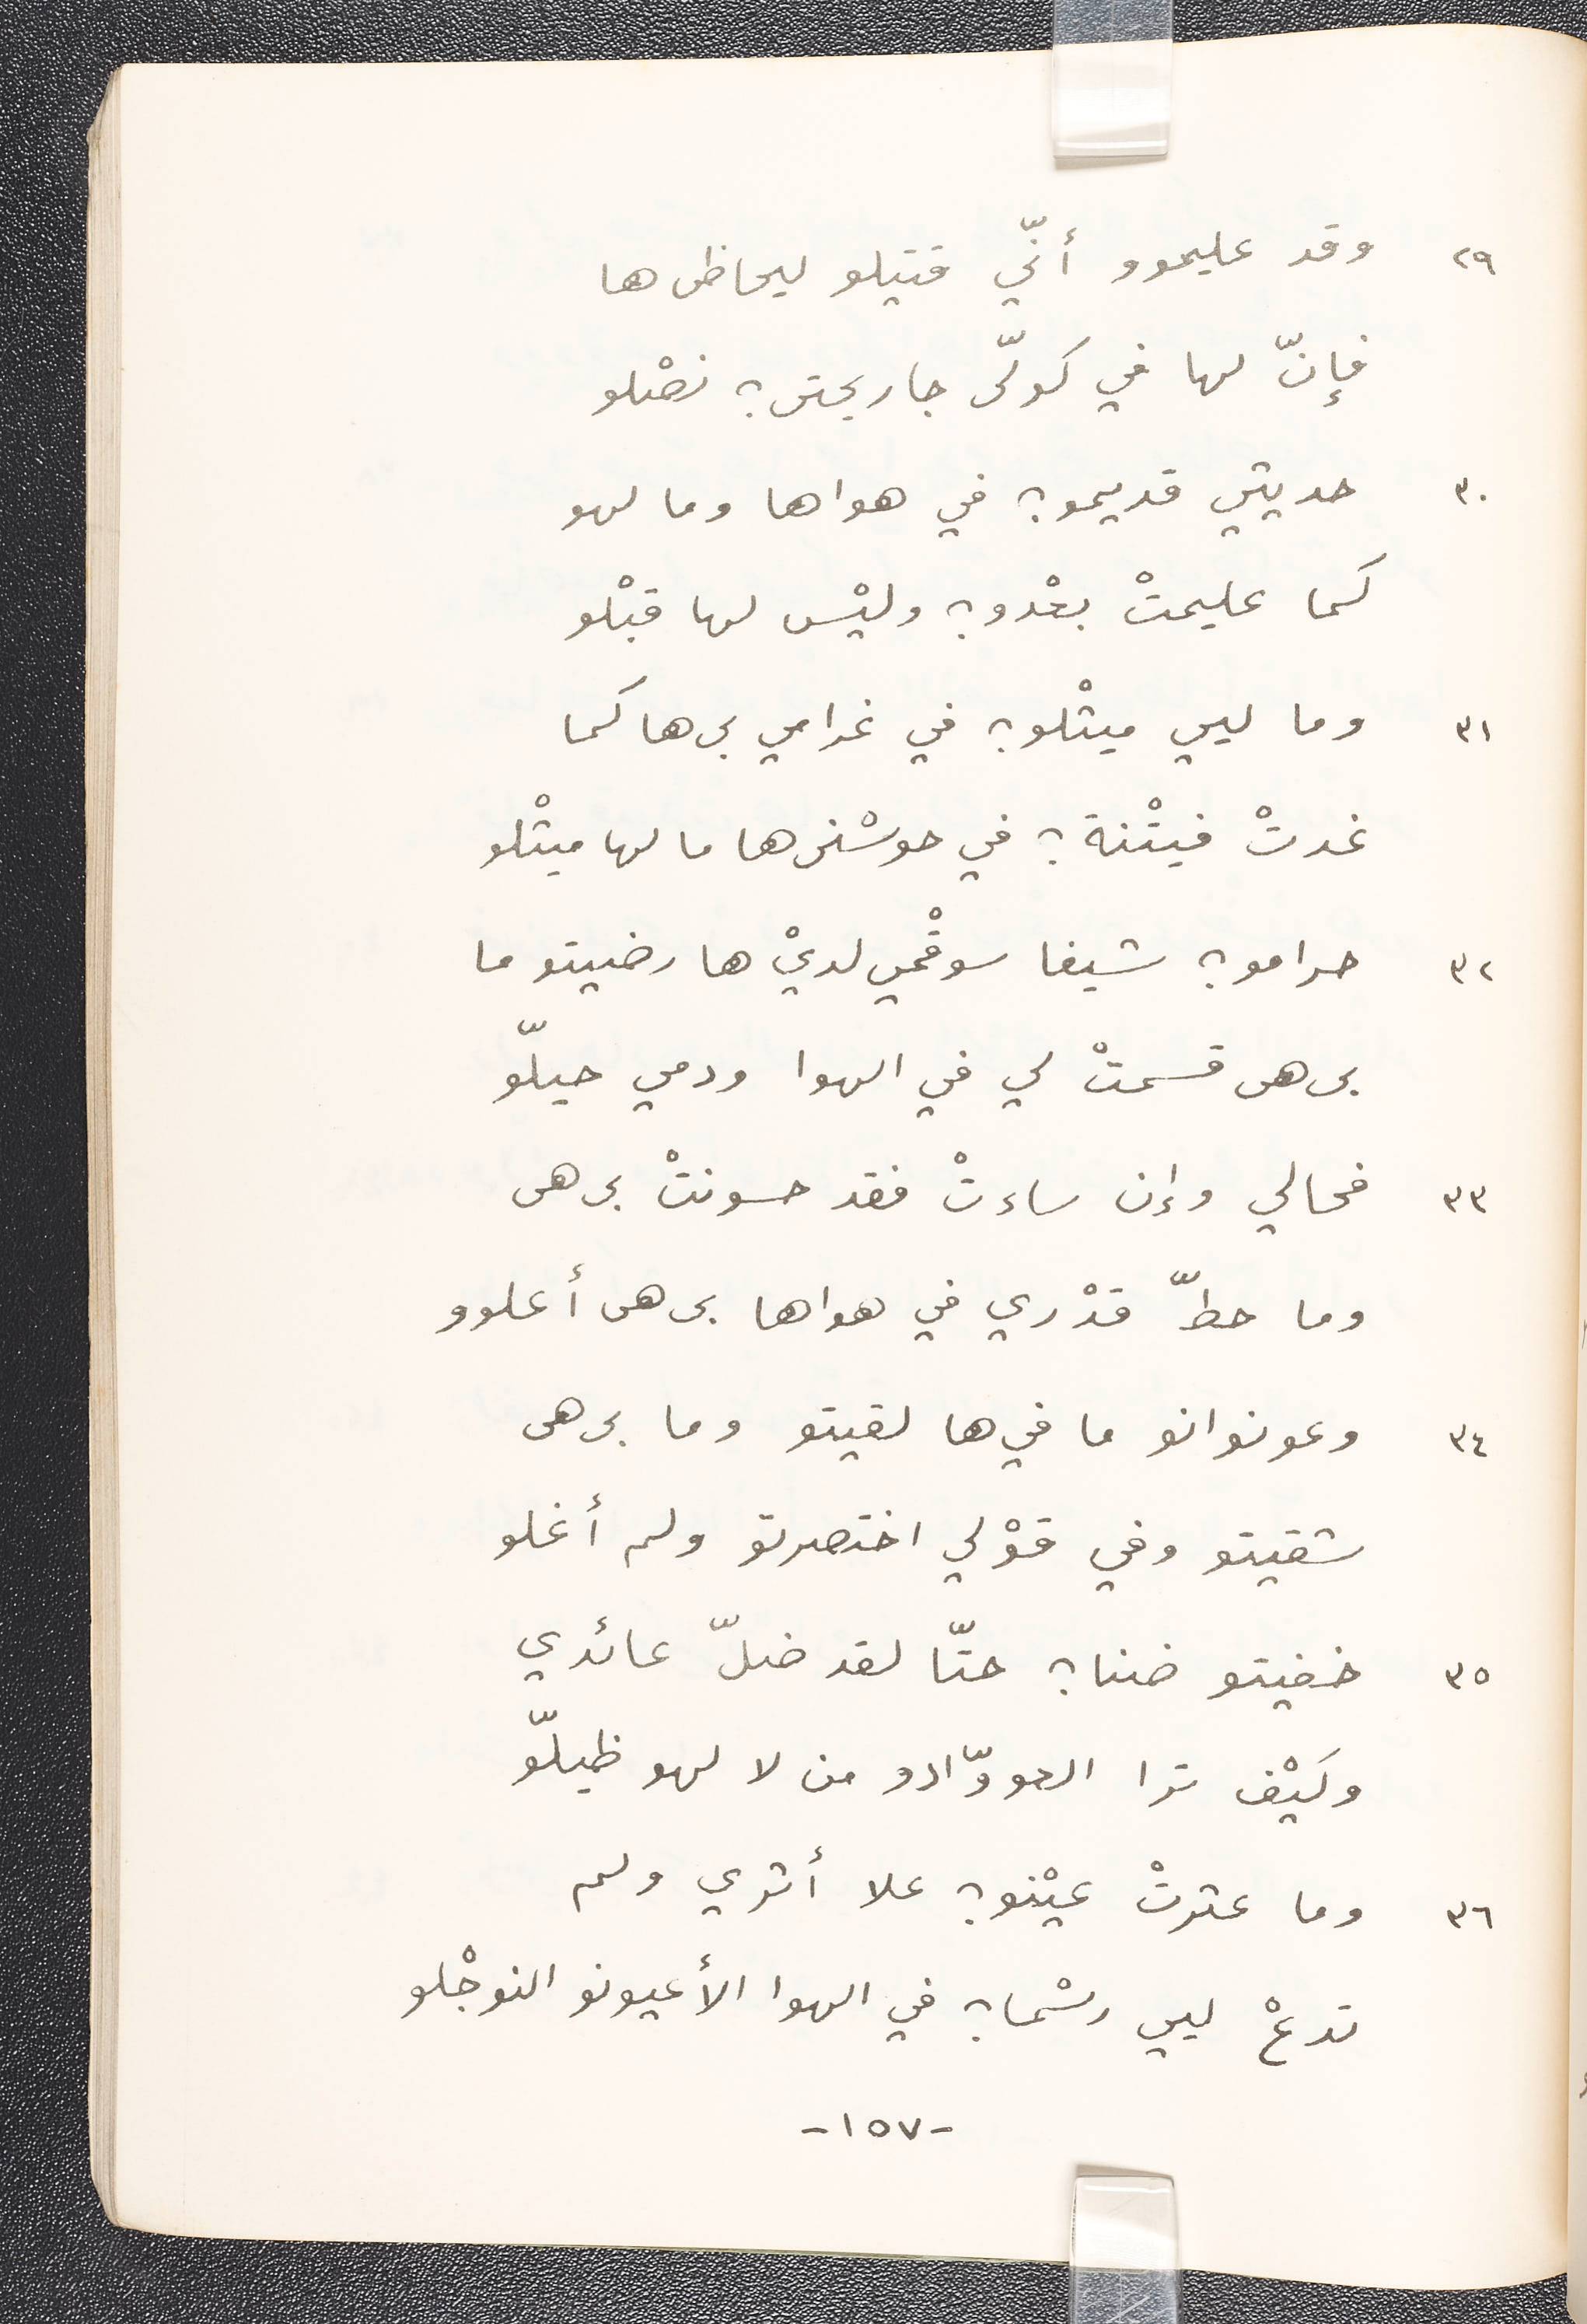 ٢٩ وقد عليموو أنّي قتيلو ليحاظى ها
فإنّ لها في كولّى جاريحتى ؟ نصْلو
٣٠ حديثي قديمو ؟ في هواها وما لهو
كما عليمتْ بعْدو ؟ وليْس لها قبْلو
٣١ وما ليي ميثْلو ؟ في غرامي بى ها كما
غدتْ فيتْنة ؟ في حوسْنى ها ما لها ميثْلو
٣٢ حرامو ؟ شيفا سوقْمي لديْ ها رضيتو ما
بى هى قسمتْ لي في الهوا ودمي حيلّو
٣٣ فحالي وإن ساءتْ فقد حسونتْ بى هى
وما حطّ قدْري في هواها بى هى أعلوو
٣٤ وعونوانو ما في ها لقيتو وما بى هى
شقيتو وفي قوْلي اختصرتو ولم أغلو
٣٥ خفيتو ضنا ؟ حتّا لقد ضلّ عائدي
وكيْف ترا العووّادو من لا لهو ظيلّو
٣٦ وما عثرتْ عيْنو ؟ علا أثري ولم
تدعْ ليي رسْما ؟ في الهوا الأعيونو النوجْلو
-١٥٧-